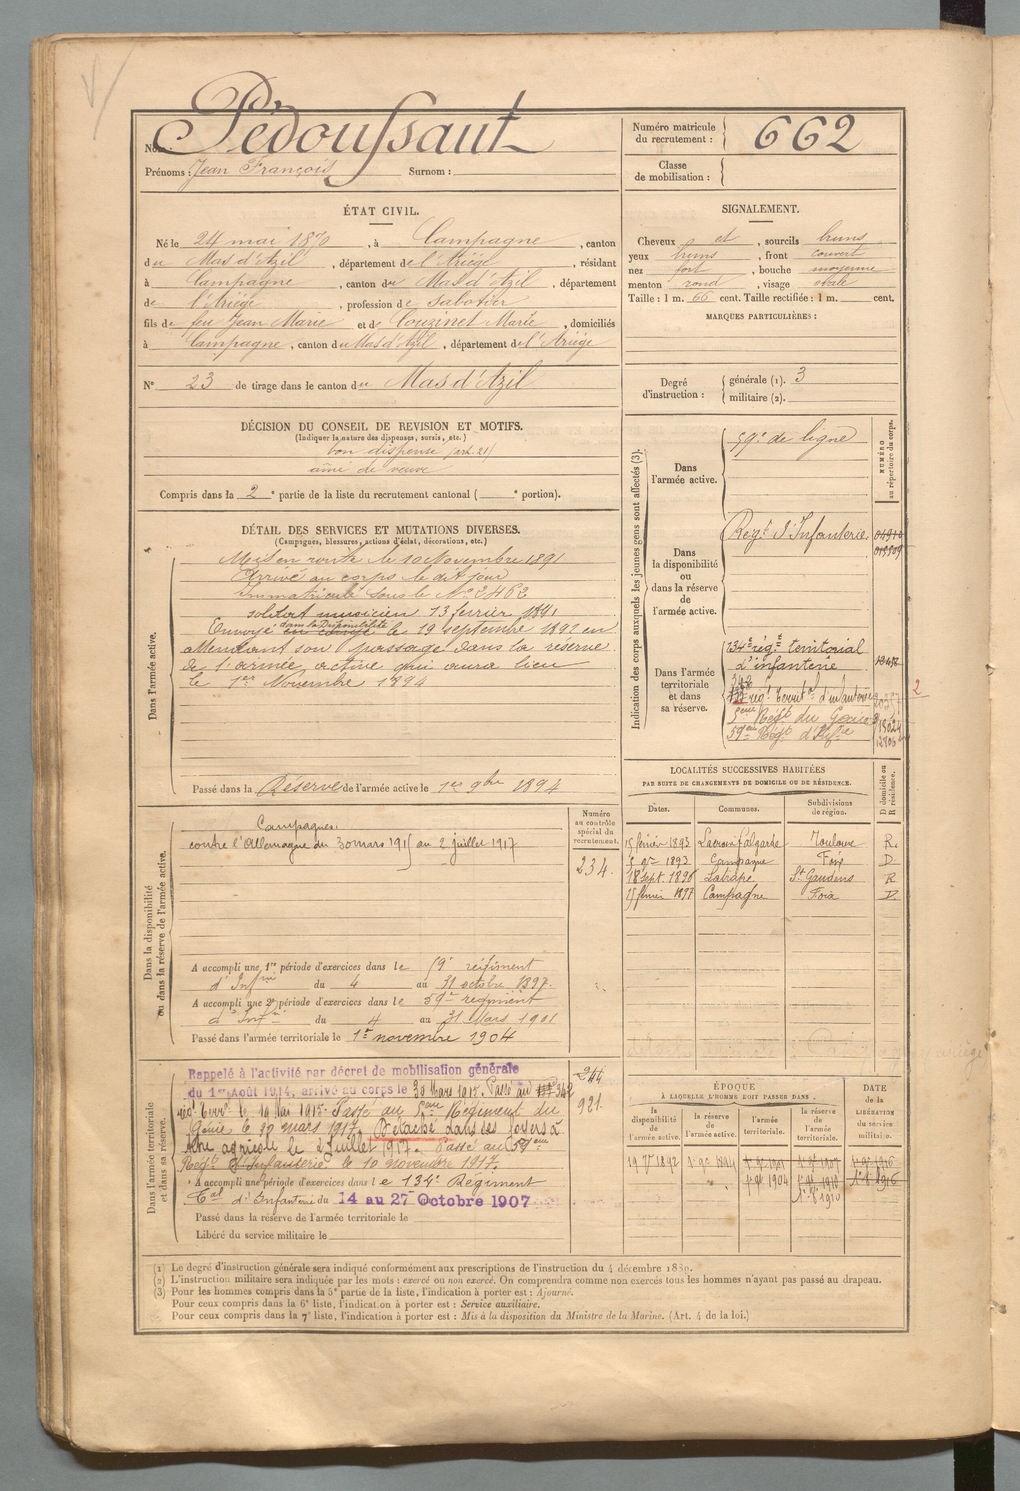 Nom: Pédoussaut
Prénoms : Jean François Surnom :
Numéro matricule du recrutement : 662
Classe de mobilisation :
ÉTAT CIVIL.
Né le 24 mai 1870, à Campagne, canton
du Mas d'Azil, département de l'Ariège, résidant
à Campagne, canton du Mas d'Azil, département
de l'Ariège, profession de Sabotier
fils de feu Jean Marie et de Couzinet Marie, domiciliés
à Campagne, canton du Mas d'Azil, département de l'Ariège
N° 23 de tirage dans le canton du Mas d'Azil
SIGNALEMENT.
Cheveux et, sourcils bruns
yeux bruns, front couvert
nez fort, bouche moyenne
menton rond, visage ovale
Taille : 1 m. 66 cent. Taille rectifiée : 1 m. cent.
MARQUES PARTICULIÈRES :
Degré d'instruction : générale (1). 3
militaire (2).
DÉCISION DU CONSEIL DE REVISION ET MOTIFS.
(Indiquer la nature des dispenses, sursis, etc.)
bon dispensé (art. 21)
aîné de veuve
Compris dans la 2e partie de la liste du recrutement cantonal ( e portion).
DÉTAIL DES SERVICES ET MUTATIONS DIVERSES.
(Campagnes, blessures, actions d'éclat, décorations, etc.)
Dans l'armée active.
Mis en route le 10 Novembre 1891
Arrivé au corps le dit jour
Immatriculé sous le N° 2462
soldat musicien 13 février
Envoyé dans la Disponibilité le 19 septembre 1892 en
attendant son passage dans la réserve
de l'armée active qui aura lieu
le 1er Novembre 1894
Passé dans la Réserve de l'armée active le 1er 9bre 1894
Indication des corps auxquels les jeunes gens sont affectés (3).
NUMÉRO au répertoire du corps.
Dans l'armée active.
59e de ligne
Dans la disponibilité ou dans la réserve de l'armée active.
Regt d'Infanterie
Dans l'armée territoriale et dans sa réserve.
134e régt territorial
d'infanterie
342
regt territal d'infanterie
5eme Régt du Génie
59eme Régt d'Infie
2
LOCALITÉS SUCCESSIVES HABITÉES
PAR SUITE DE CHANGEMENTS DE DOMICILE OU DE RÉSIDENCE.
Dates. Communes. Subdivisions de région. D domicile ou R résidence.
15 février 1893 Lacroix Falgarde Toulouse R.
1893 Campagne Foix D
18 sept. 1896 Latrape St Gaudens R
15 février 1897 Campagne Foix D
Dans la disponibilité ou dans la réserve de l'armée active.
Numéro au contrôle spécial du recrutement.
234.
Campagnes.
contre l'Allemagne du 30 mars 1915 au 2 juillet 1917
A accompli une 1re période d'exercices dans le 59e régiment
d'Infrie du 4 au 31 octobre 1897.
A accompli une 2e période d'exercices dans le 59e régiment
d'Infrie du 4 au 31 Mars 1901
Passé dans l'armée territoriale le 1er novembre 1904
Dans l'armée territoriale et dans sa réserve.
244
921.
Rappelé à l'activité par décret de mobilisation générale
du 1er Août 1914, arrivé au corps le 30 Mars 1915. Passé au 342
régt terral le 10 Mai 1915. Passé au 5eme Régiment du
Génie le 20 mars 1917. Détaché dans ses foyers à
titre agricole le 2 Juillet 1917. Passé au 59eme
Régt d'Infanterie le 10 novembre 1917.
A accompli une période d'exercices dans le 134e Régiment
Tal d'Infanterie du 14 au 27 Octobre 1907
Passé dans la réserve de l'armée territoriale le
Libéré du service militaire le
ÉPOQUE
A LAQUELLE L'HOMME DOIT PASSER DANS :
DATE de la LIBÉRATION du service militaire.
la disponibilité de l'armée active. la réserve de l'armée active. l'armée territoriale. la réserve de l'armée territoriale.
1er 9e 1894 1er 9e 1907 1er 9e 1916
1er 9e 1904 1er 9e 1910
(1) Le degré d'instruction générale sera indiqué conformément aux prescriptions de l'instruction du 4 décembre 1889.
(2) L'instruction militaire sera indiquée par les mots : exercé ou non exercé. On comprendra comme non exercés tous les hommes n'ayant pas passé au drapeau.
(3) Pour les hommes compris dans la 5e partie de la liste, l'indication à porter est : Ajourné.
Pour ceux compris dans la 6e liste, l'indication à porter est : Service auxiliaire.
Pour ceux compris dans la 7e liste, l'indication à porter est : Mis à la disposition du Ministre de la Marine. (Art. 4 de la loi.)